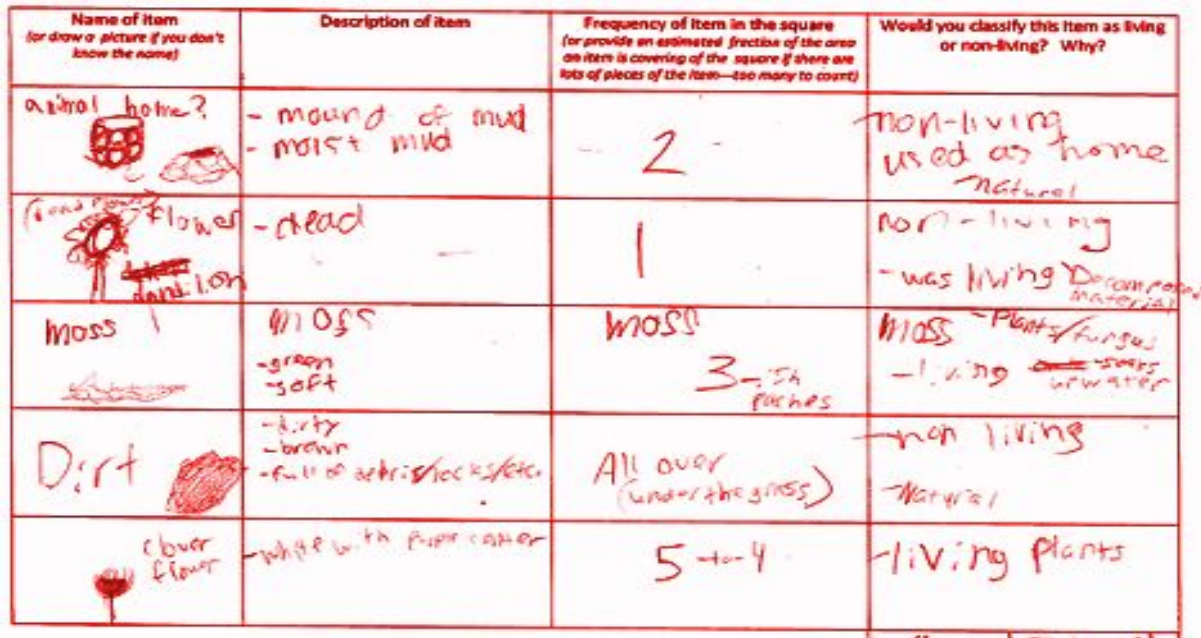 Name of item
(or draw a picture if you don't
know the name)
Description of item
Frequency of item in the square
(or provide an estimated fraction of the area
an item is covering of the square if there are
lots of pieces of the item—too many to count)
Would you classify this item as living
or non-living? Why?
animal home?
- mound of mud
- moist mud
2
non-living
used as home
natural
flower
- dead
1
non-living
- was living
material
moss
moss
- green
- soft
moss
3-ish
moss - Plants/fungus
- living
water
Dirt
- dirty
- brown
- full of debris/rocks/etc.
All over
(under the grass)
- non living
- Natural
clover
flower
- white with center
5 -to- 4
- living plants